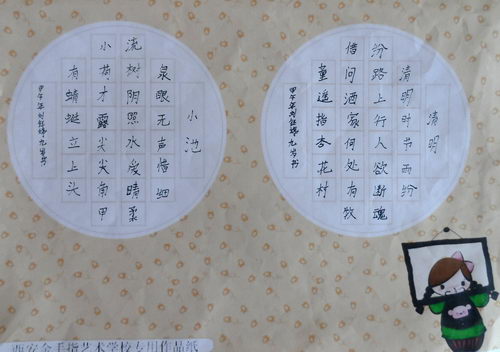 清明
清明时节雨纷
纷路上行人欲断魂
借问酒家何处有牧
童遥指杏花村
甲午年刘九岁书
小池
泉眼无声惜细
流树阴照水爱晴柔
小荷才露尖尖角早
有蜻蜓立上头
甲午年刘九岁书
西安金手指艺术学校专用作品纸